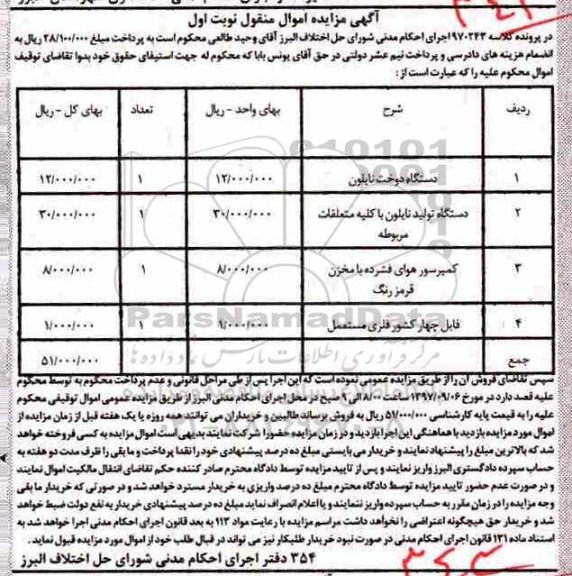 آگهی مزایده اموال منقول نوبت اول
در پرونده کلاسه ۹۷۰۲۴۳ اجرای احکام مدنی شورای حل اختلاف البرز آقای وحید طالعی محکوم است به پرداخت مبلغ ۲۸/۱۰۰/۰۰۰ ریال به
انضمام هزینه های دادرسی و پرداخت نیم عشر دولتی در حق آقای یونس بابا که محکوم له جهت استیفای حقوق خود بدوا تقاضای توقیف
اموال محکوم علیه را که عبارت است از:
ردیف شرح بهای واحد - ریال تعداد بهای کل - ریال
۱ دستگاه دوخت نایلون ۱۲/۰۰۰/۰۰۰ ۱ ۱۲/۰۰۰/۰۰۰
۲ دستگاه تولید نایلون با کلیه متعلقات ۳۰/۰۰۰/۰۰۰ ۱ ۳۰/۰۰۰/۰۰۰
مربوطه
۳ کمپرسور هوای فشرده با مخزن ۸/۰۰۰/۰۰۰ ۱ ۸/۰۰۰/۰۰۰
قرمز رنگ
۴ فایل چهار کشور فلزی مستعمل ۱/۰۰۰/۰۰۰ ۱ ۱/۰۰۰/۰۰۰
جمع ۵۱/۰۰۰/۰۰۰
ParsNamadData
مرکز فرآوری اطلاعات پارس نماد داده ها
سپس تقاضای فروش آن را از طریق مزایده عمومی نموده است که این اجرا پس از طی مراحل قانونی و عدم پرداخت محکوم به توسط محکوم
علیه قصد دارد در مورخ ۱۳۹۷/۰۹/۰۶ ساعت ۸/۰۰ الی ۹ صبح در محل اجرای احکام مدنی البرز از طریق مزایده عمومی اموال توقیفی محکوم
علیه را به قیمت پایه کارشناسی ۵۷/۰۰۰/۰۰۰ ریال به فروش برساند طالبین و خریداران می توانند همه روزه یا یک هفته قبل از زمان مزایده از
اموال مورد مزایده بازدید با هماهنگی این اجرا بازدید و در زمان مزایده حضورا شرکت نمایند بدیهی است اموال مزایده به کسی فروخته خواهد
شد که بالاترین مبلغ را پیشنهاد نمایند و خریدار می بایستی مبلغ ده درصد پیشنهادی خود را نقدا پرداخت و مابقی را ظرف مدت دو هفته به
حساب سپرده دادگستری البرز واریز نمایند و پس از تایید مزایده توسط دادگاه محترم صادر کننده حکم تقاضای انتقال مالکیت اموال نمایند
و در صورت عدم حضور تایید مزایده توسط دادگاه محترم مبلغ ده درصد واریزی به خریدار مسترد خواهد شد و در صورتی که خریدار مابقی
وجه مزایده را در زمان مقرر به حساب سپرده واریز ننمایند و یا اعلام انصراف نماید مبلغ ده درصد پیشنهادی خریدار به نفع دولت ضبط خواهد
شد و خریدار حق هیچگونه اعتراضی را نخواهد داشت مراسم مزایده با رعایت مواد ۱۱۳ به بعد قانون اجرای احکام مدنی اجرا خواهد شد به
استناد ماده ۱۳۱ قانون اجرای احکام مدنی در صورت نبود خریدار طلبکار نیز می تواند در قبال طلب خود از اموال مورد مزایده قبول نماید.
۳۵۴ دفتر اجرای احکام مدنی شورای حل اختلاف البرز